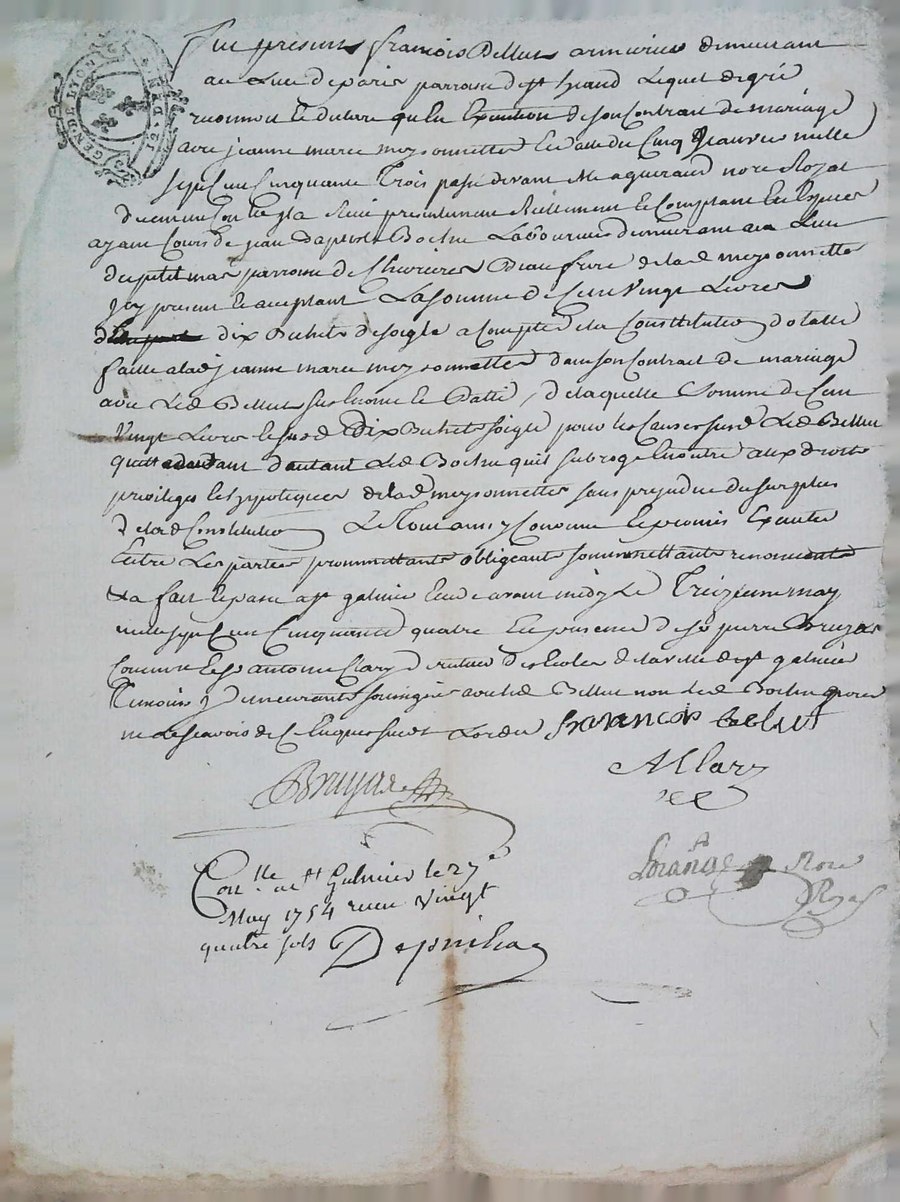 GEN.DE LYON
Fut present françois Bellut armurier demeurant
au Lieu de paris parroisse de st heand Lequel de gré
reconnoit et declare qu'en Execution de son Contrat de mariage
avec jeanne marie meysonnettes En datte du Cinq Janvier mille
sept Cent Cinquante Trois passé devant Me nore Royal
Il a Reçu presentement Reellement et Comptant En Espèces
ayant Cours de jean Baptiste Bochu Laboureur demeurant au Lieu
du petit mas parroisse de Chevrières Beaufrere de lad meysonnette
Icy present et acceptant La somme de Cent Vingt Livres
dix Bichets de soigle a Compte de la Constitution dotalle
faitte a lad jeanne marie meysonnettes dans son Contrat de mariage
avec Led Bellut sus Enoncé et Datté, de laquelle Somme de Cent
Vingt Livres et susd Dix Bichets soigle pour les Causes susd Led Bellut
quitte d'autant Led Bochu qu'il subroge Encontre aux droits
privileges et hypoteques de lad meysonnettes sans prejudice du surplus
de lad Constitution Le Tout ainsy Convenu
Entre Les parties promettants obligeants soummettants renonceants
fait et passé a st galmier Etude avant midy Le Treizieme may
mille sept Cent Cinquante quatre En presence de sr pierre Bruyas
Commis et sr antoine Clary de la ville de st galmier
Temoins y demeurants soussignés avec led Bellut non led Bochu pour
ne scavoir de Ce Enquis
francois bellut
Bruyas
AClary
Conlle a st Galmier le 27e
May 1754 recu Vingt
quatre sols
Nore
Royal